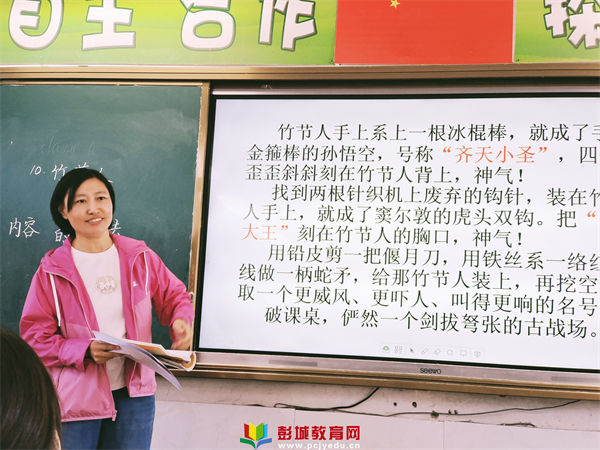 自主 合作 探
10.竹节人
内容
的
竹节人手上系上一根冰棍棒，就成了手
金箍棒的孙悟空，号称“齐天小圣”，四
歪歪斜斜刻在竹节人背上，神气！
找到两根针织机上废弃的钩针，装在竹
人手上，就成了窦尔敦的虎头双钩。把“
大王”刻在竹节人的胸口，神气！
用铅皮剪一把偃月刀，用铁丝系一络红
线做一柄蛇矛，给那竹节人装上，再挖空
取一个更威风、更吓人、叫得更响的名号
破课桌，俨然一个剑拔弩张的古战场。
seewo
彭城教育网
www.pcjyedu.cn